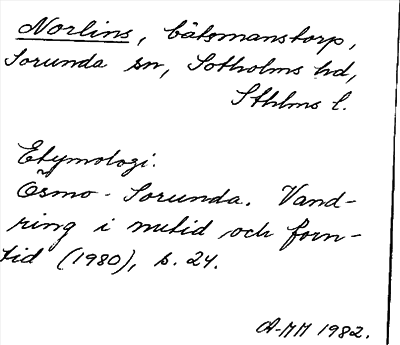 Norlins, båtsmanstorp,
Sorunda sn, Sotholms hd,
Sthlms l.
Etymologi.
Ösmo - Sorunda. Vand-
ring i nutid och forn-
tid (1980), s. 24.
A-MM 1982.